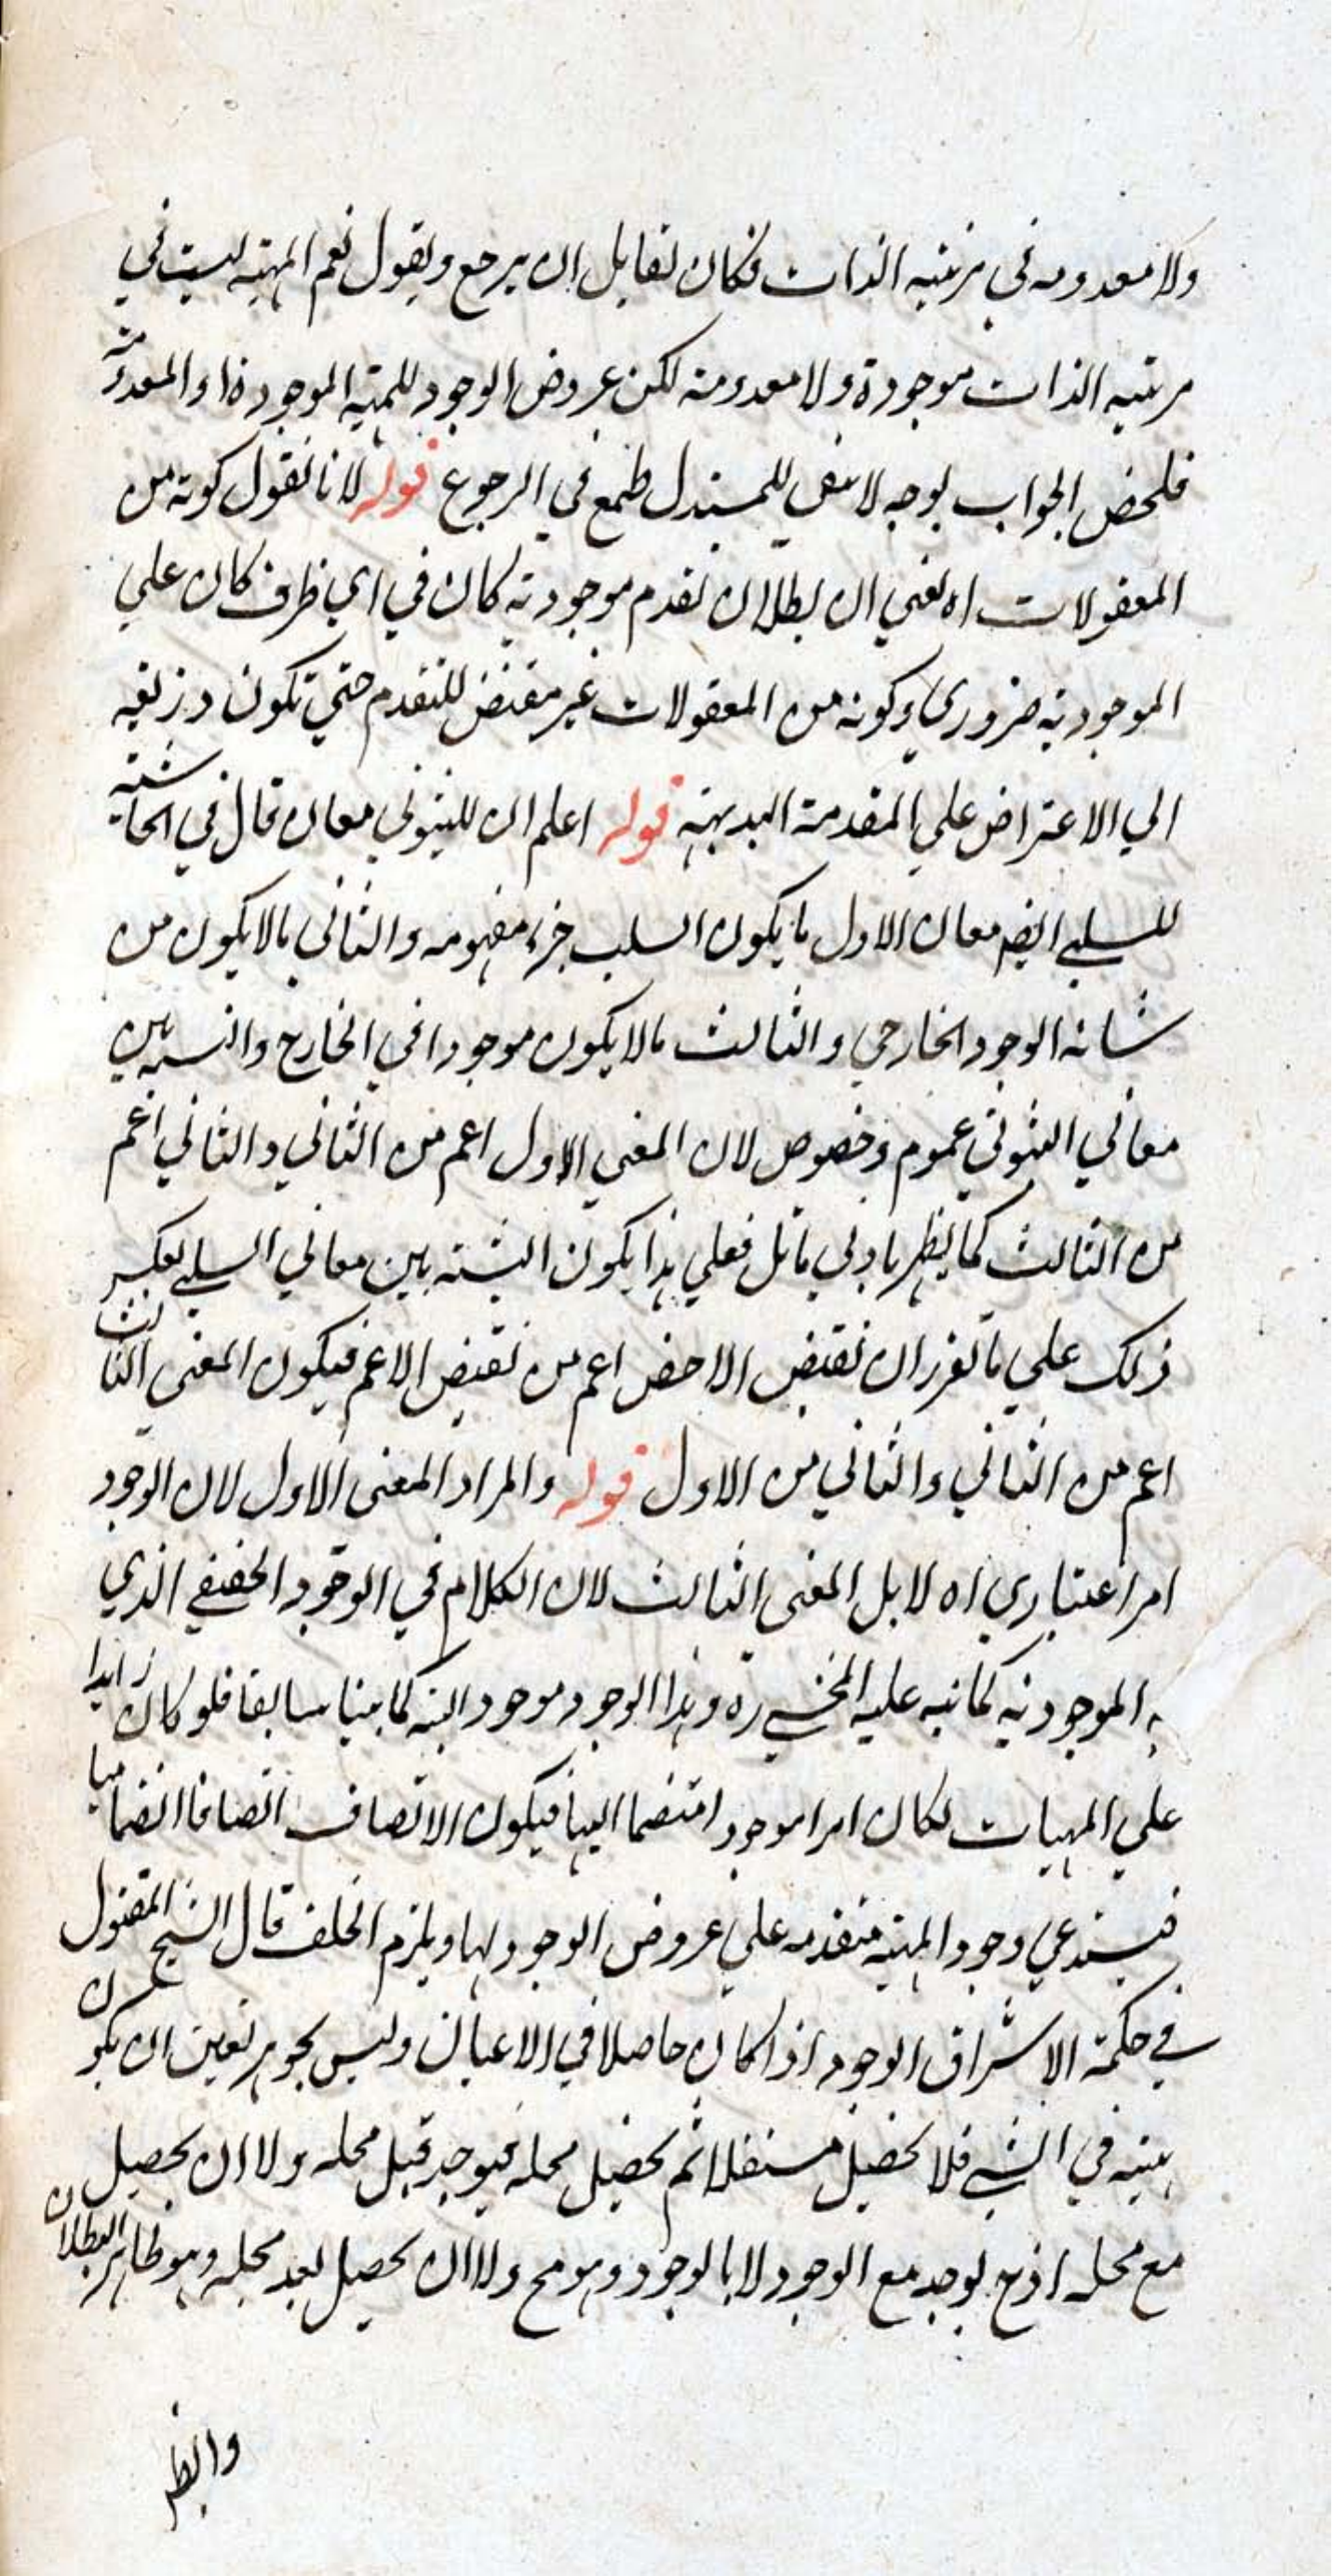 ولا معدومه في مرتبه الذات فكان لقايل ان يرجع ويقول نعم المهيه ليست في
مرتبه الذات موجودة ولا معدومة لكن عروض الوجود للمهيه الموجودة او المعدومة
فلخص الجواب بوجه لا يبقى للمستدل طمع في الرجوع قوله لانا نقول كونه من
المعقولات اه يعني ان بطلان تقدم موجوديته كان في اي ظرف كان علي
الموجودية ضروري وكونه من المعقولات غير مقتض للتقدم حتي تكون ذريعه
الي الاعتراض علي المقدمة البديهية قوله اعلم ان للثبوتي معان قال في الحاشية
للسلبي ايضم معان الاول ما يكون السلب جزء مفهومه والثاني ما لا يكون من
شانه الوجود الخارجي والثالث ما لا يكون موجودا في الخارج والنسبه بين
معاني الثبوتي عموم وخصوص لان المعني الاول اعم من الثاني والثاني اعم
من الثالث كما يظهر بادني تامل فعلي هذا يكون النسبته بين معاني السلبي بعكس
ذلك علي ما تقرر ان نقيض الاخص اعم من نقيض الاعم فيكون المعنى الثالث
اعم من الثاني والثاني من الاول قوله والمراد المعنى الاول لان الوجود
امر اعتباري اه لا بل المعنى الثالث لان الكلام في الوجود الحقيقي الذي
به الموجودية كما نبه عليه المحشي ره وهذا الوجود موجود البته كما بينا سابقا فلو كان زايدا
علي المهيات لكان امرا موجودا منضما اليها فيكون الاتصاف اتصافا انضماميا
فيستدعي وجود المهيه متقدمه علي عروض الوجود لها ويلزم الخلف قال الشيخ المقتول
في حكمة الاشراق الوجود اذا كان حاصلا في الاعيان وليس بجوهر تعين ان يكون
هيئه في الشي فلا يحصل مستقلا ثم يحصل محله فيوجد قبل محله ولا ان يحصل
مع محله اذ ح يوجد مع الوجود لا بالوجود وهو مح ولا ان يحصل بعد محله وهو ظاهر البطلان